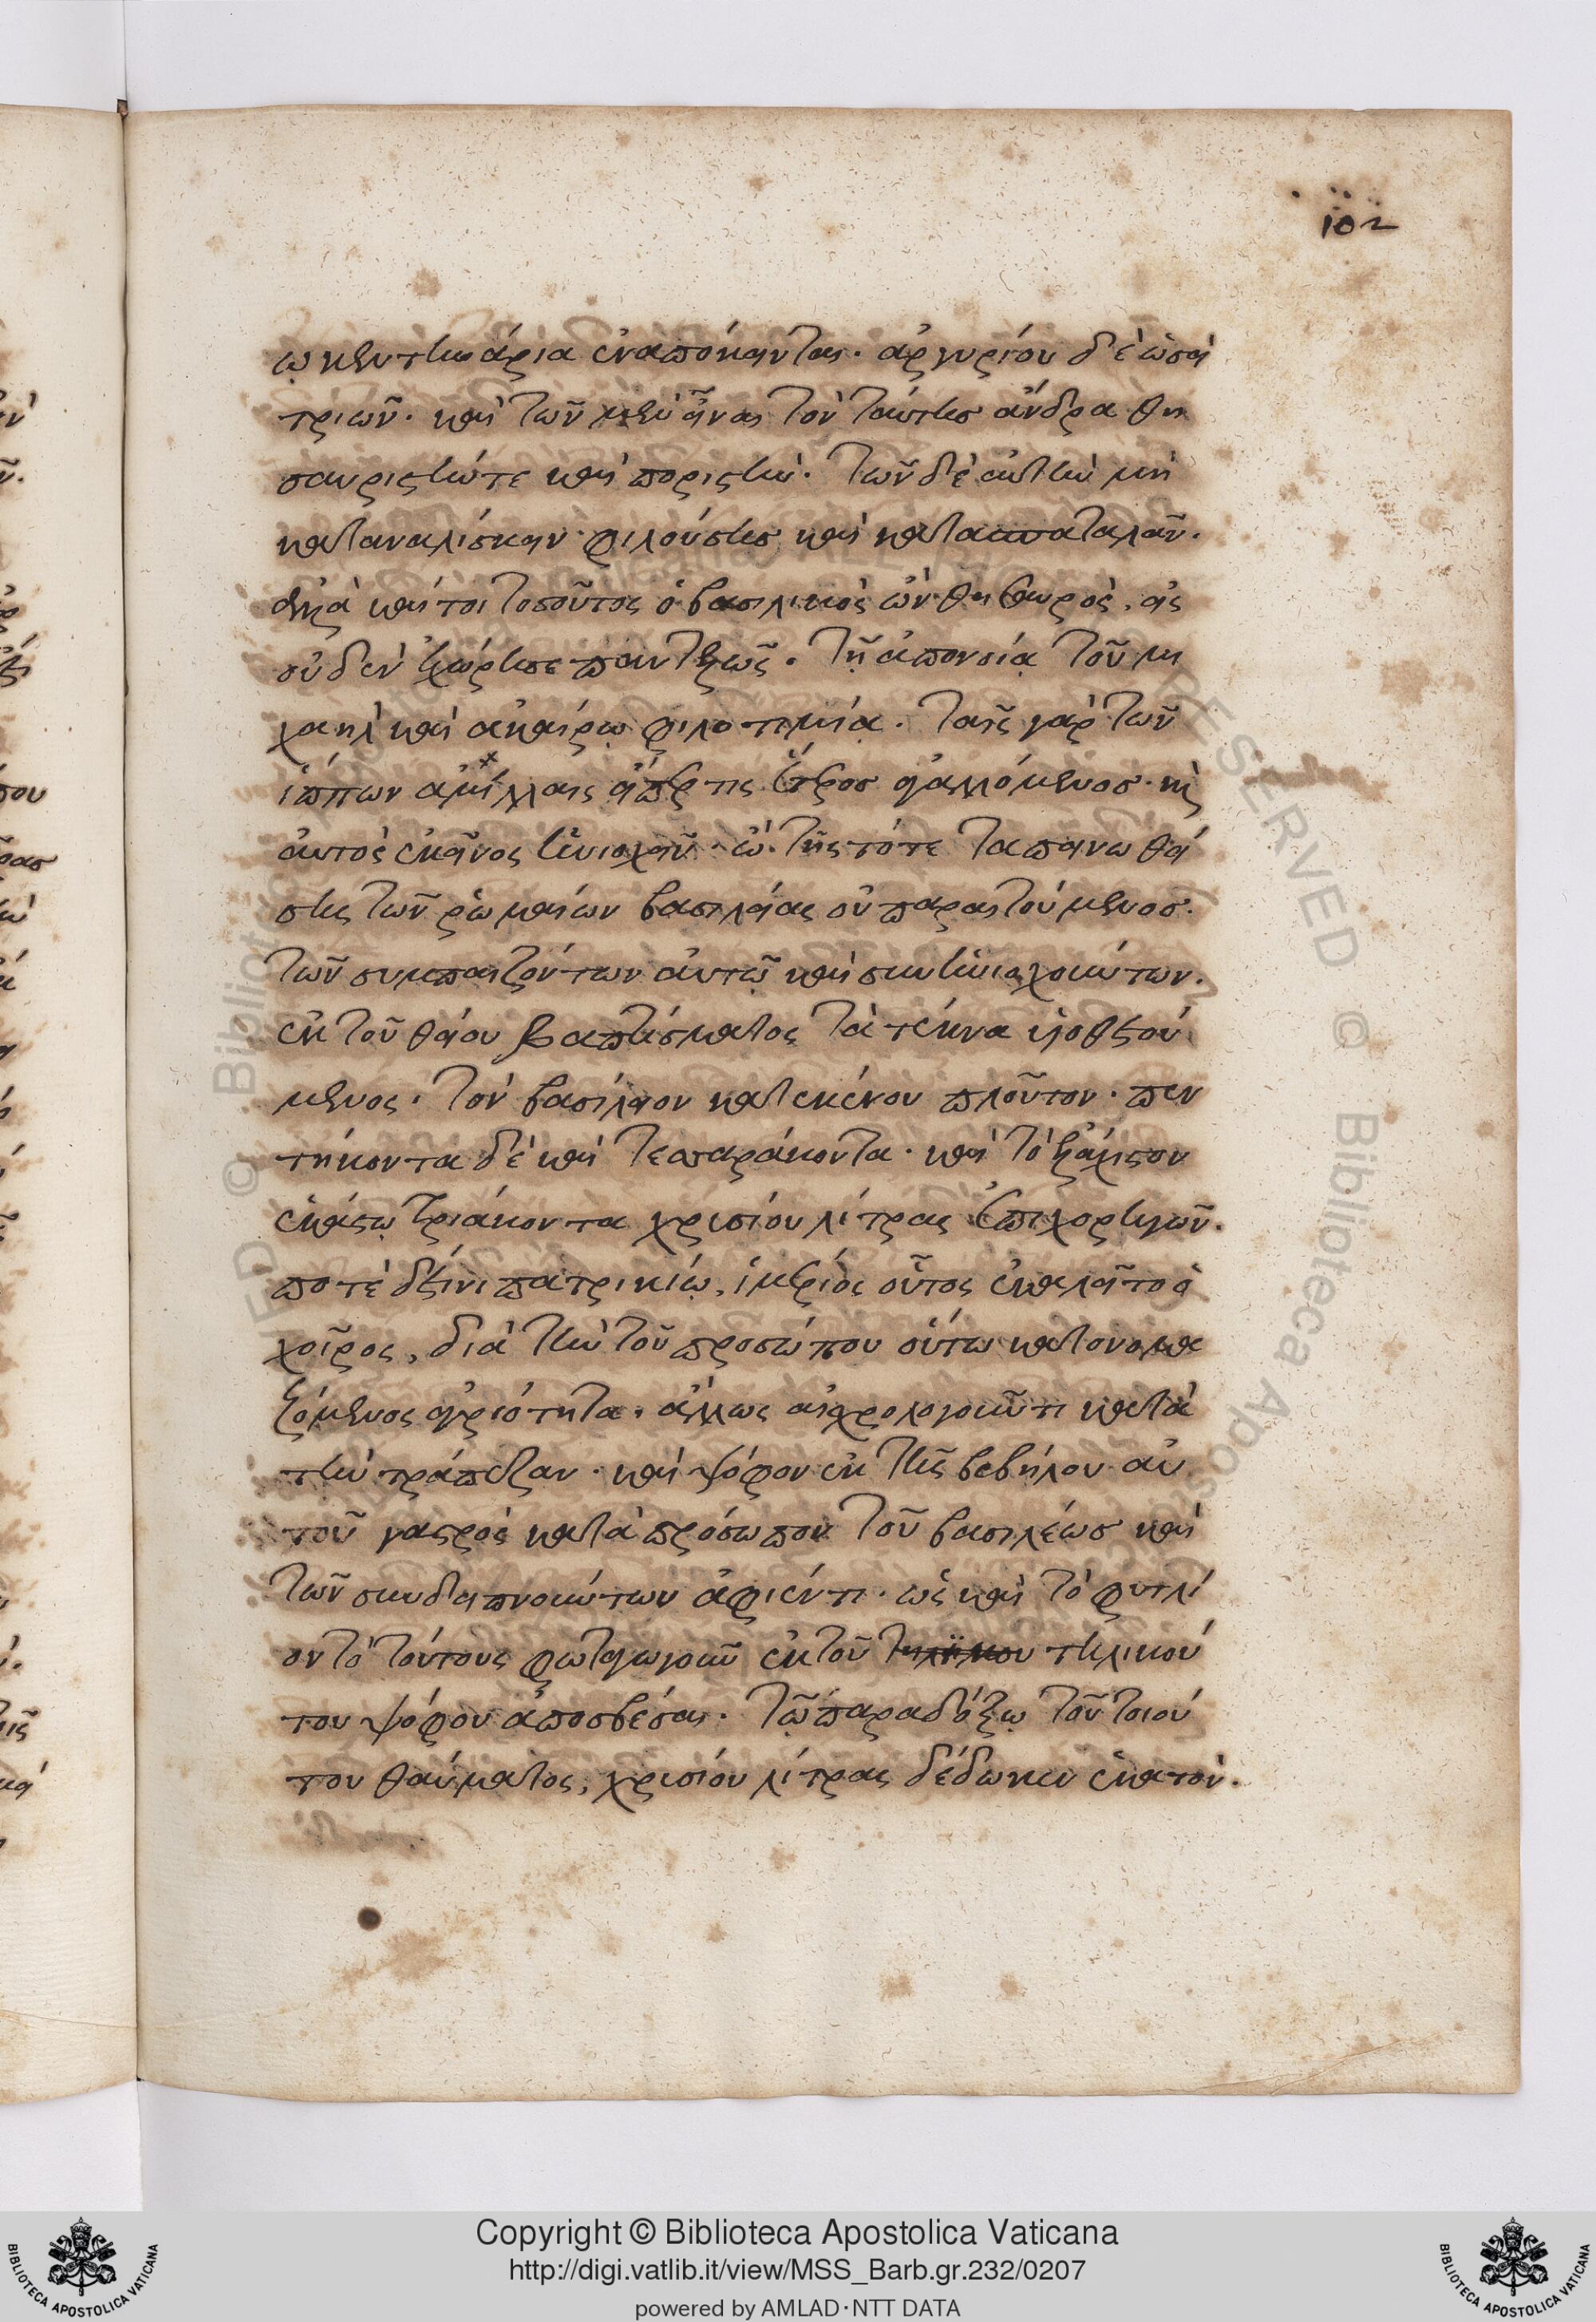 102
ῳ κεντηνάρια ἐναπόκεινται. ἀργυρίου δὲ ὡσεὶ
τριῶν. καὶ τῶν μὲν εἶναι τὸν ταύτης ἄνδρα θη
σαυριστήν τε καὶ ποριστήν. τῶν δὲ αὐτὴν μὴ
καταναλίσκειν φιλούσης καὶ κατασπαταλᾶν.
ἀλλὰ καί τοι τοσοῦτος ὁ βασιλικὸς ὢν θησαυρὸς, εἰς
οὐδὲν ἐχώρησε παντελῶς. τῇ ἀπονοίᾳ τοῦ μι
χαὴλ καὶ ἀκαίρῳ φιλοτιμίᾳ. ταῖς γὰρ τῶν
ἵππων ἁμίλλαις εἴπερ τις ἕτερος ἀγαλλόμενος. κὶ
αὐτὸς ἐκεῖνος ἡνιοχεῖν ὢ τῆς τότε ταπεινωθεί
σης τῶν ῥωμαίων βασιλείας οὐ παραιτούμενος.
τῶν συμπαιζόντων αὐτῷ καὶ συνηνιοχούντων.
ἐκ τοῦ θείου βαπτίσματος τὰ τέκνα υἱοθετού
μενος. τὸν βασίλειον κατεκένου πλοῦτον. πεν
τήκοντα δὲ καὶ τεσσαράκοντα. καὶ τὸ ἐλάχιστον
ἑκάστῳ τριάκοντα χρυσίου λίτρας ἐπιχορηγῶν.
ποτὲ δέ τινι πατρικίῳ, ἱμέριος οὗτος ἐκαλεῖτο ὁ
χοῖρος, διὰ τὴν τοῦ προσώπου οὕτω κατονομα
ζόμενος ἀγριότητα. ἄλλως αἰσχρολογοῦντι κατὰ
τὴν τράπεζαν. καὶ ψόφον ἐκ τῆς βεβήλου αὐ
τοῦ γαστρὸς κατὰ πρόσωπον τοῦ βασιλέως καὶ
τῶν συνδειπνούντων ἀφιέντι. ὡς καὶ τὸ φυτλί
ον τὸ τούτους φωταγωγοῦν ἐκ τοῦ τηλικού
του ψόφου ἀποσβέσαι. τῷ παραδόξῳ τοῦ τοιού
του θαύματος, χρυσίου λίτρας δέδωκεν ἑκατόν.
Copyright © Biblioteca Apostolica Vaticana
http://digi.vatlib.it/view/MSS_Barb.gr.232/0207
powered by AMLAD·NTT DATA